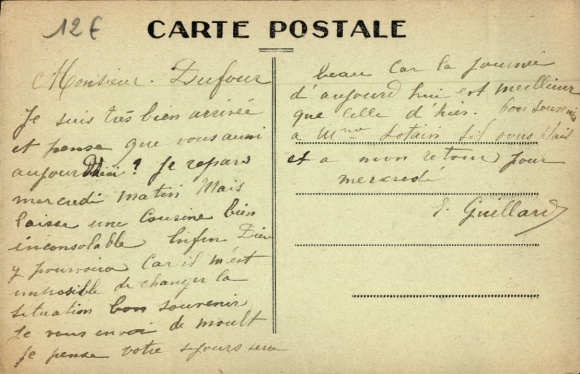 12€
CARTE POSTALE
Monsieur Dufour
Je suis très bien arrivée
et pense que vous aussi
aujourd'hui? Je repars
mercredi matin Mais
laisse une Cousine bien
inconsolable Enfin Dieu
y pourvoira Car il m'est
impossible de changer la
situation bon souvenir
Je vous envoi de moult
Je pense votre séjours sera
beau Car la journée
d'aujourd'hui est meilleur
que celle d'hier. bon souvenir
a Mme Lotain s'il vous plait
et a mon retour pour
mercredi
Guillard